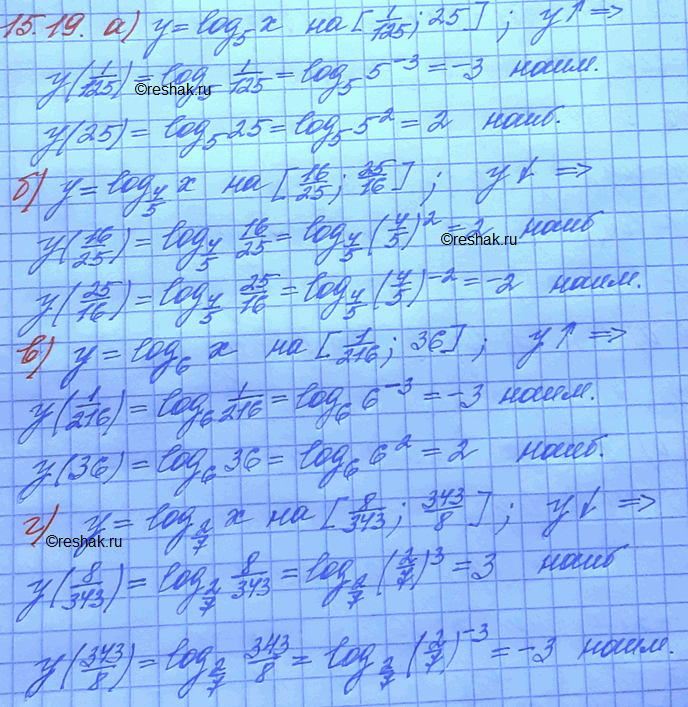 15.19. а) y = log₅ x на [1/125; 25]; y↑ ⇒
y(1/125) = log₅ 1/125 = log₅ 5⁻³ = -3 наим.
©reshak.ru
y(25) = log₅ 25 = log₅ 5² = 2 наиб.
б) y = log_{4/5} x на [16/25; 25/16]; y↓ ⇒
y(16/25) = log_{4/5} 16/25 = log_{4/5} (4/5)² = 2 наиб
©reshak.ru
y(25/16) = log_{4/5} 25/16 = log_{4/5} (4/5)⁻² = -2 наим.
в) y = log₆ x на [1/216; 36]; y↑ ⇒
y(1/216) = log₆ 1/216 = log₆ 6⁻³ = -3 наим.
y(36) = log₆ 36 = log₆ 6² = 2 наиб.
г) y = log_{2/7} x на [8/343; 343/8]; y↓ ⇒
©reshak.ru
y(8/343) = log_{2/7} 8/343 = log_{2/7} (2/7)³ = 3 наиб
y(343/8) = log_{2/7} 343/8 = log_{2/7} (2/7)⁻³ = -3 наим.